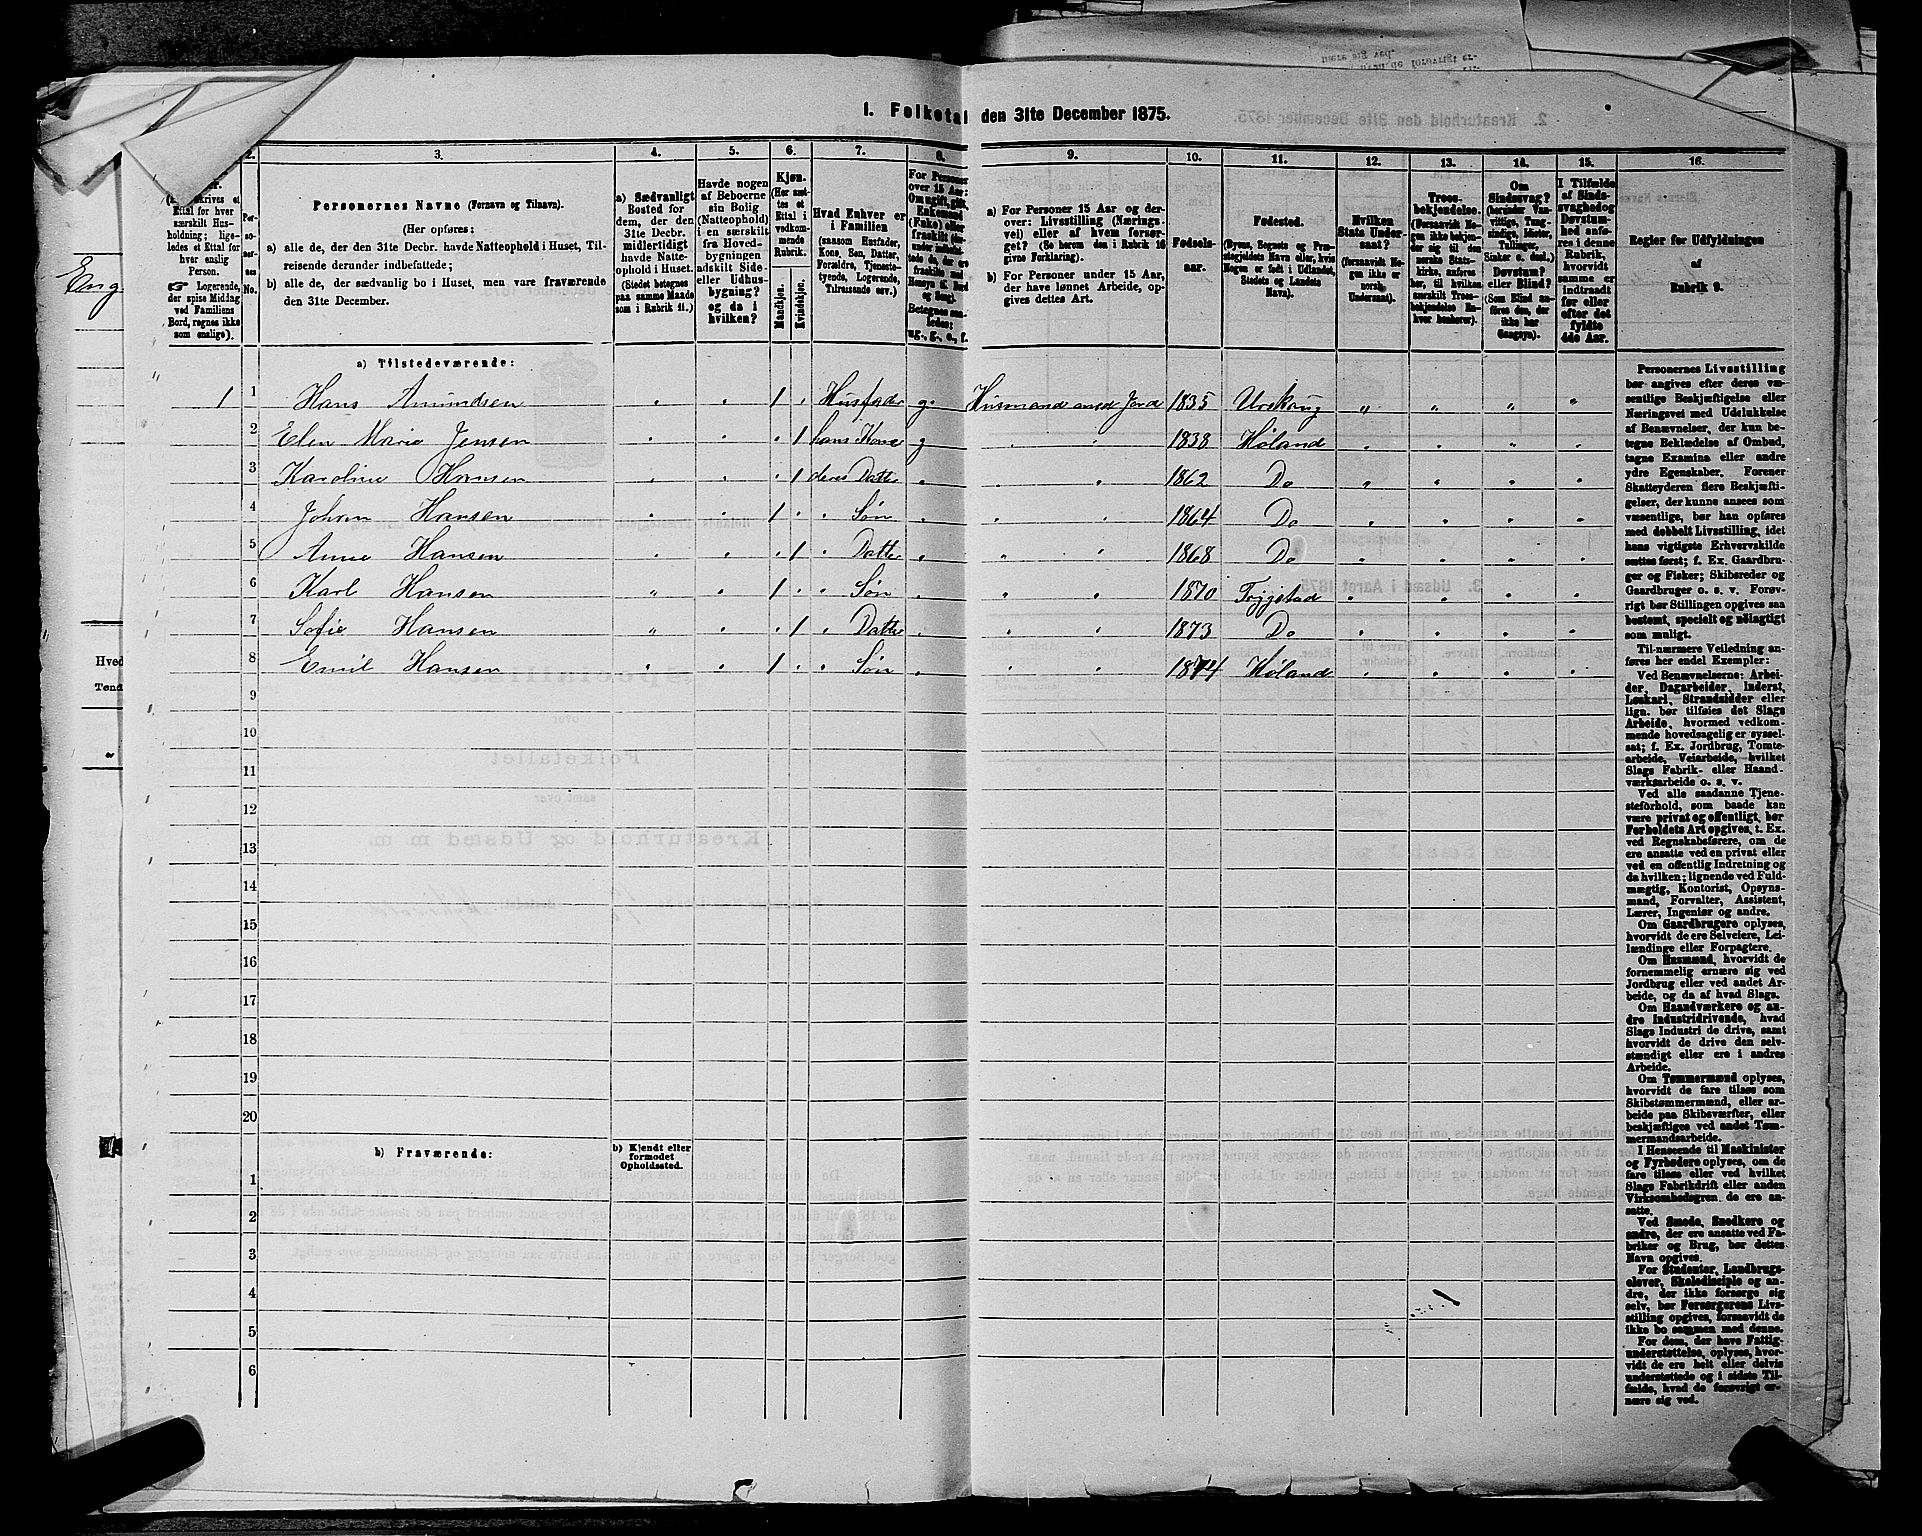 1. Folketal den 31te December 1875.
2. 3. 4. 5. 6. 7. 8. 9. 10. 11. 12. 13. 14. 15. 16.
Ettal for hver særskilt Husholdning; ligeledes et Ettal for hver enslig Person.
☞ Logerende, der spise Middag ved Familiens Bord, regnes ikke som enslige).
Personernes No.
Personernes Navne (Fornavn og Tilnavn).
(Her opføres:
a) alle de, der den 31te Decbr. havde Natteophold i Huset, Tilreisende derunder indbefattede;
b) alle de, der sædvanlig bo i Huset, men vare fraværende den 31te December.
a) Sædvanligt Bosted for dem, der den 31te Decbr. midlertidigt havde Natteophold i Huset.
(Stedet betegnes paa samme Maade som i Rubrik 11.)
Havde nogen af Beboerne sin Bolig (Natteophold) i en særskilt fra Hovedbygningen adskilt Side- eller Udhusbygning? og da i hvilken?
Kjøn. (Her sættes et Ettal i vedkommende Rubrik.
Mandkjøn. Kvindekjøn.
Hvad Enhver er i Familien (saasom Husfader, Kone, Søn, Datter, Forældre, Tjenestetyende, Logerende, Tilreisende osv.)
For Personer over 15 Aar: Om ugift, gift,
ug., g., e., f.
a) For Personer 15 Aar og derover: Livsstilling (Næringsvei) eller af hvem forsørget? (Se herom den i Rubrik 16 givne Forklaring).
b) For Personer under 15 Aar, der have lønnet Arbeide, opgives dettes Art.
Fødselsaar.
Fødested.
(Byens, Sognets og Præstegjeldets Navn eller, hvis Nogen er født i Udlandet, Stedets og Landets Navn).
Hvilken Stats Undersaat?
(forsaavidt Nogen ikke er norsk Undersaat).
Troesbekjendelse.
(Forsaavidt Nogen ikke bekjender sig til den norske Statskirke, anføres her, til hvilken særskilt Troesbekjendelse Enhver henhører).
Om Sindssvag?
(herunder Vanvittige, Tungsindige, Idioter, Tullinger, Sinker o. desl.)
Døvstum? eller Blind?
(Som Blind anføres den, der ikke har Gangsyn).
I Tilfælde af Sindssvaghed og Døvstumhed anføres i denne Rubrik, hvorvidt samme er indtraadt før eller efter det fyldte 4de Aar.
Regler for Udfyldningen af Rubrik 9.
a) Tilstedeværende:
1 1 Hans Amundsen " " 1 " Husfader g. Husmand med Jord 1835 Urskoug " " " "
2 Elen Marie Jensen " " " 1 hans Kone g " " 1838 Høland " " " "
3 Karoline Hansen " " " 1 deres Datter " " " 1862 Do " " " "
4 Johan Hansen " " 1 " " Søn " " " 1864 Do " " " "
5 Anne Hansen " " " 1 " Datter " " " 1868 Do " " " "
6 Karl Hansen " " 1 " " Søn " " " 1870 Trygstad " " " "
7 Sofie Hansen " " " 1 " Datter " " " 1873 Do " " " "
8 Emil Hansen " " 1 " " Søn " " " 1874 Høland " " " "
9
10
11
12
13
14
15
16
17
18
19
20
b) Fraværende: b) Kjendt eller formodet Opholdssted.
1
2
3
4
5
6
Personernes Livsstilling
bør angives efter deres væsentlige
Beskjæftigelse eller
Næringsvei med Udelukkelse
af Benævnelser, der kun betegne
Beklædelse af Ombud,
tagne Examina eller andre
ydre Egenskaber. Forener
Skatteyderen flere Beskjæftigelser,
der kunne ansees som
væsentlige, bør han opføres
med dobbelt Livsstilling, idet
hans vigtigste Erhvervskilde
sættes først; f. Ex. Gaardbruger
og Fisker; Skibsreder og
Gaardbruger o. s. v. Forøvrigt
bør Stillingen opgives saa
bestemt, specielt og nøiagtigt
som muligt.
Til nærmere Veiledning anføres
her endel Exempler:
Ved Benævnelserne: Arbeider,
Dagarbeider, Inderst,
Løskarl, Strandsidder eller
lign. bør tilføies det Slags
Arbeide, hvormed vedkommende
hovedsagelig er sysselsat;
f. Ex. Jordbrug, Tomtearbeide,
Veiarbeide, hvilket
Slags Fabrik- eller Haandværksarbeide
o. s. v.
Ved alle saadanne Tjenesteforhold,
som baade kan
være privat og offentligt, bør
Forholdets Art opgives, t. Ex.
ved Regnskabsførere, om de
ere ansatte ved en privat eller
ved en offentlig Indretning og
da hvilken; lignende ved Fuldmægtig,
Kontorist, Opsynsmand,
Forvalter, Assistent,
Lærer, Ingeniør og andre.
Om Gaardbrugere oplyses,
hvorvidt de ere Selveiere, Leilændinge
eller Forpagtere.
Om Husmænd, hvorvidt de
fornemmelig ernære sig ved
Jordbrug eller ved andet Arbeide,
og da af hvad Slags.
Om Haandværkere og andre
Industridrivende, hvad
Slags Industri de drive, samt
hvorvidt de drive den selvstændigt
eller ere i andres
Arbeide.
Om Tømmermænd oplyses,
hvorvidt de fare tilsøs som
Skibstømmermænd, eller arbeide
paa Skibsværfter, eller
beskjæftiges ved andet Tømmermandsarbeide.
I Henseende til Maskinister
og Fyrbødere oplyses, om de
fare tilsøs eller ved hvilket
Slags Fabrikdrift eller anden
Virksomhedsgren de ere ansatte.
Ved Smede, Snedkere og
andre, der ere ansatte ved Fabriker
og Brug, bør dettes
Navn opgives.
For Studenter, Landbrugselever,
Skoledisciple og andre,
der ikke forsørge sig
selv, bør Forsørgerens Livsstilling
opgives, forsaavidt de
ikke bo sammen med denne.
For dem, der have Fattigunderstøttelse,
oplyses, hvorvidt
de ere helt eller delvis
understøttede og i sidste Tilfælde,
hvad de forøvrigt ernære
sig ved.
Eng
Hved
Tønd